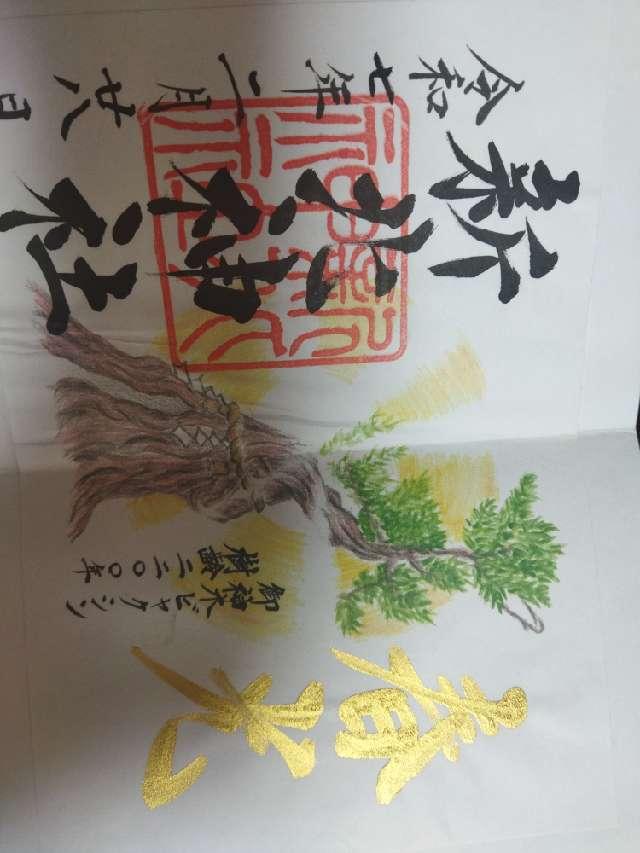 春光
御神木ビャクシン
樹齢二二〇〇年
新北神社
令和七年二月廿八日